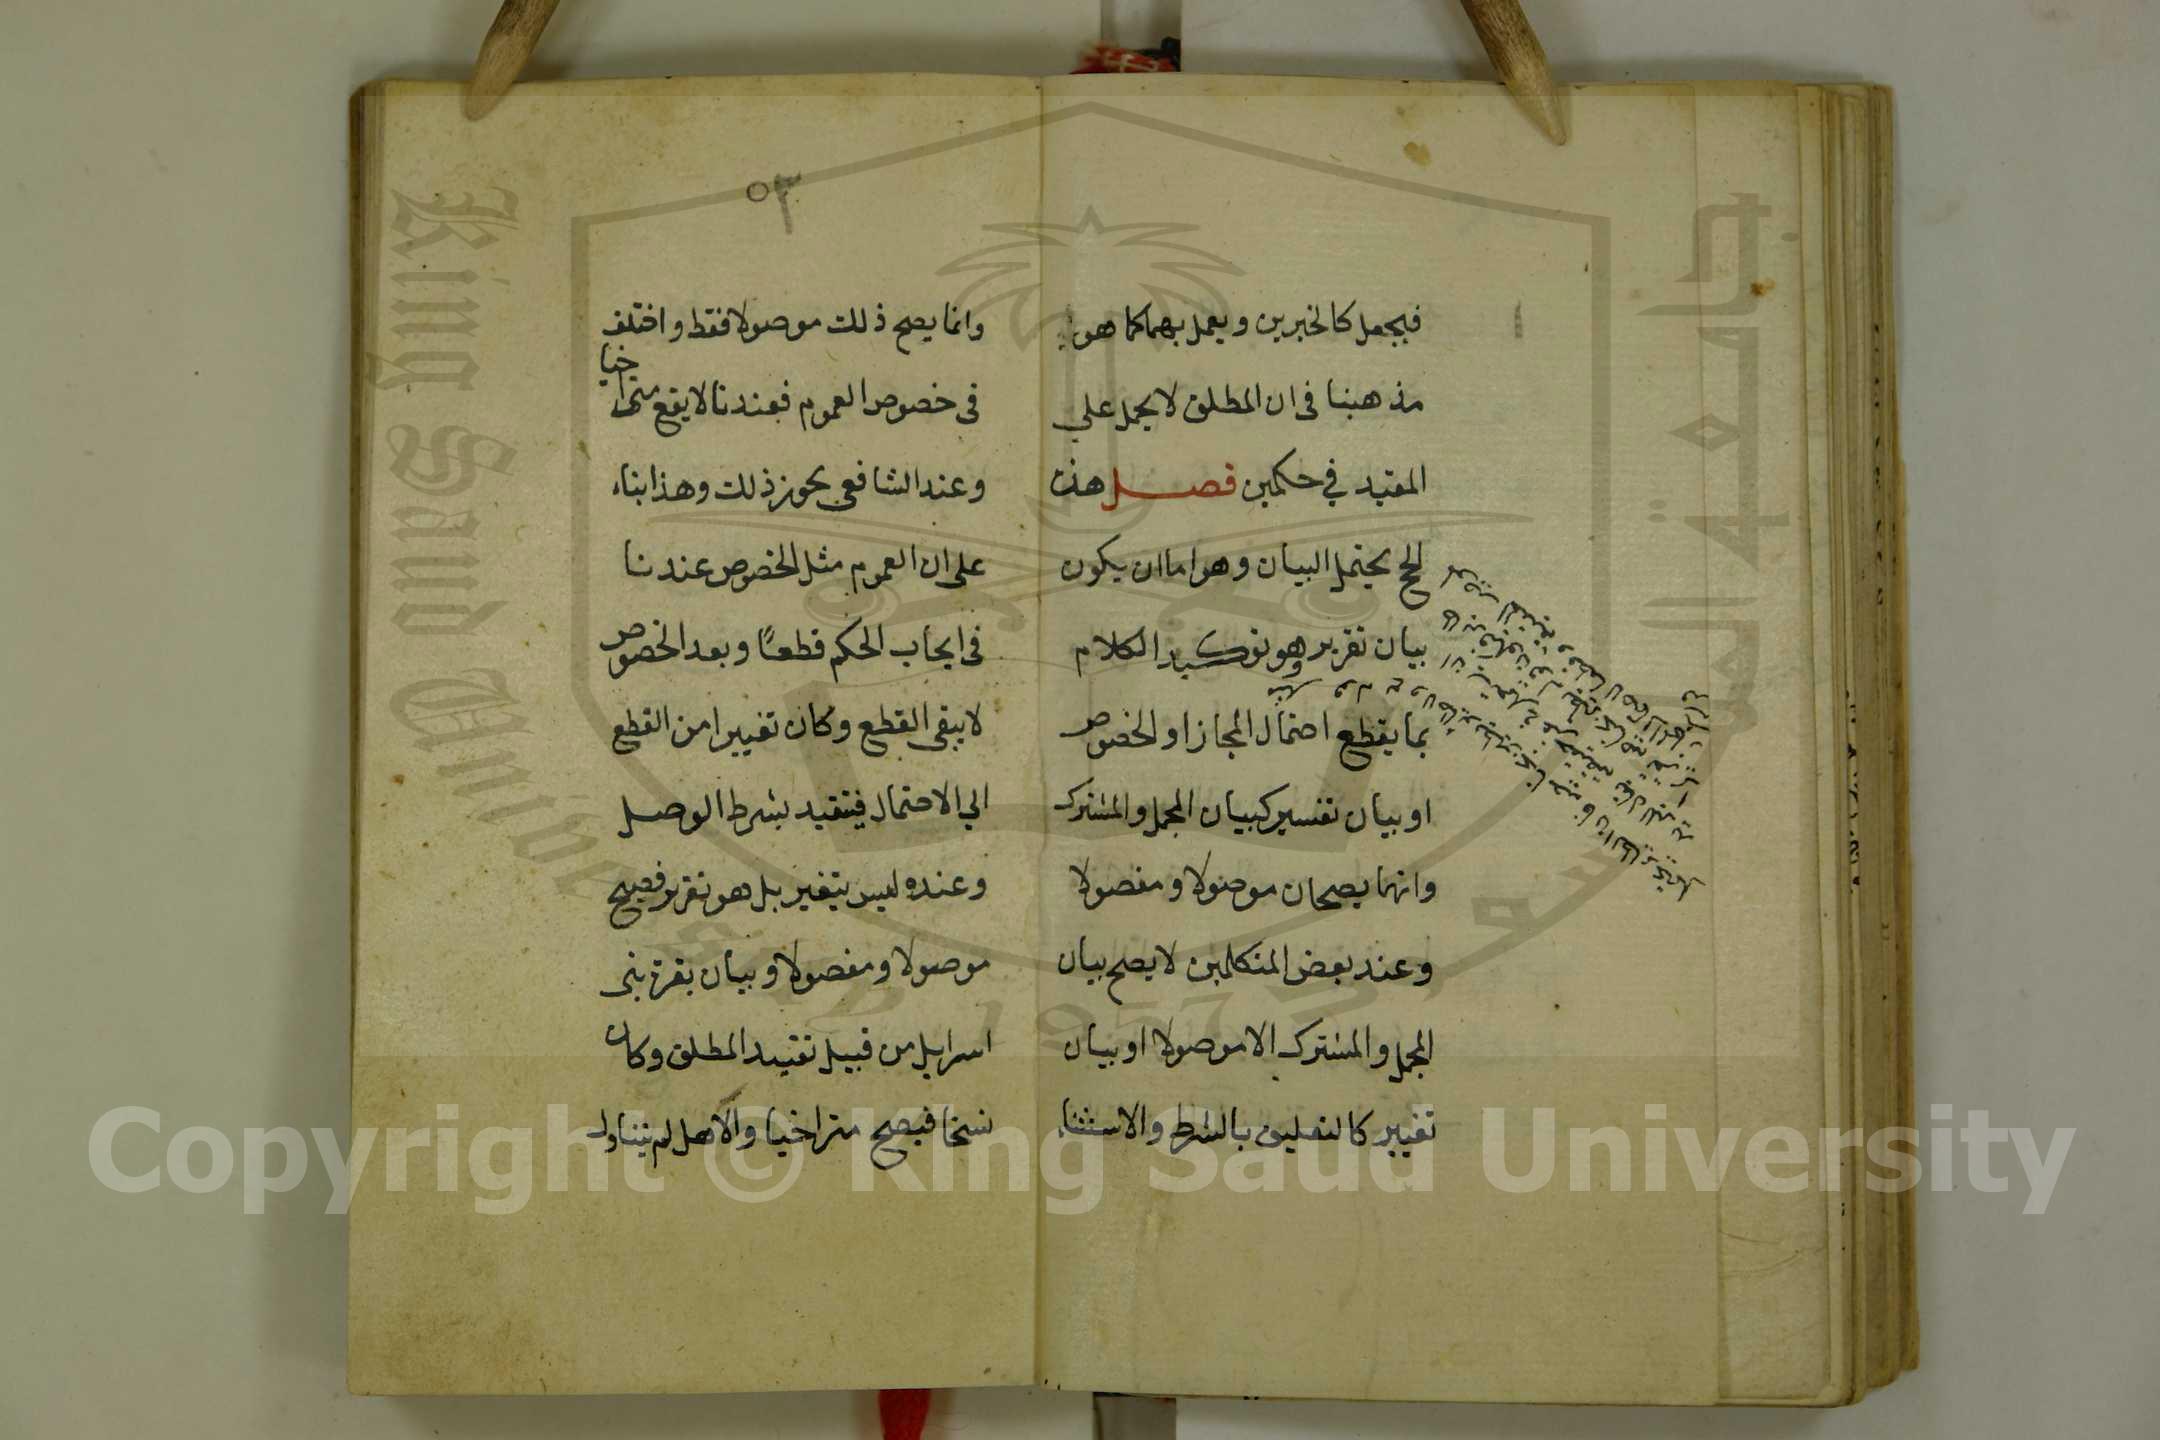 فيجعل كالخبرين ويعمل بهما كما هو
مذهبنا فى ان المطلق لا يحمل علي
المقيد في حكمين فصل هذه
الحجج يحتمل البيان وهو اما ان يكون
بيان تقرير وهو توكيد الكلام
بما يقطع احتمال المجاز او الخصوص
او بيان تفسير كبيان المجمل والمشترك
وانهما يصحان موصولا ومفصولا
وعند بعض المتكلمين لا يصح بيان
المجمل والمشترك الا موصولا او بيان
تغيير كالتعليق بالشرط والاستثناء
٥٣
وانما يصح ذلك موصولا فقط واختلف
فى خصوص العموم فعندنا لا يقع متراخيا
وعند الشافعى يجوز ذلك وهذا بناء
على ان العموم مثل الخصوص عندنا
فى ايجاب الحكم قطعًا وبعد الخصوص
لا يبقى القطع وكان تغييرا من القطع
الي الاحتمال فيتقيد بشرط الوصل
وعنده ليس بتغيير بل هو تقرير فصيح
موصولا ومفصولا وبيان بقرة بنى
اسرايل من قبيل تقييد المطلق وكان
نسخا فيصح متراخيا والاهل لم يتناول
King Saud University
جامعة الملك سعود
1957
Copyright © King Saud University